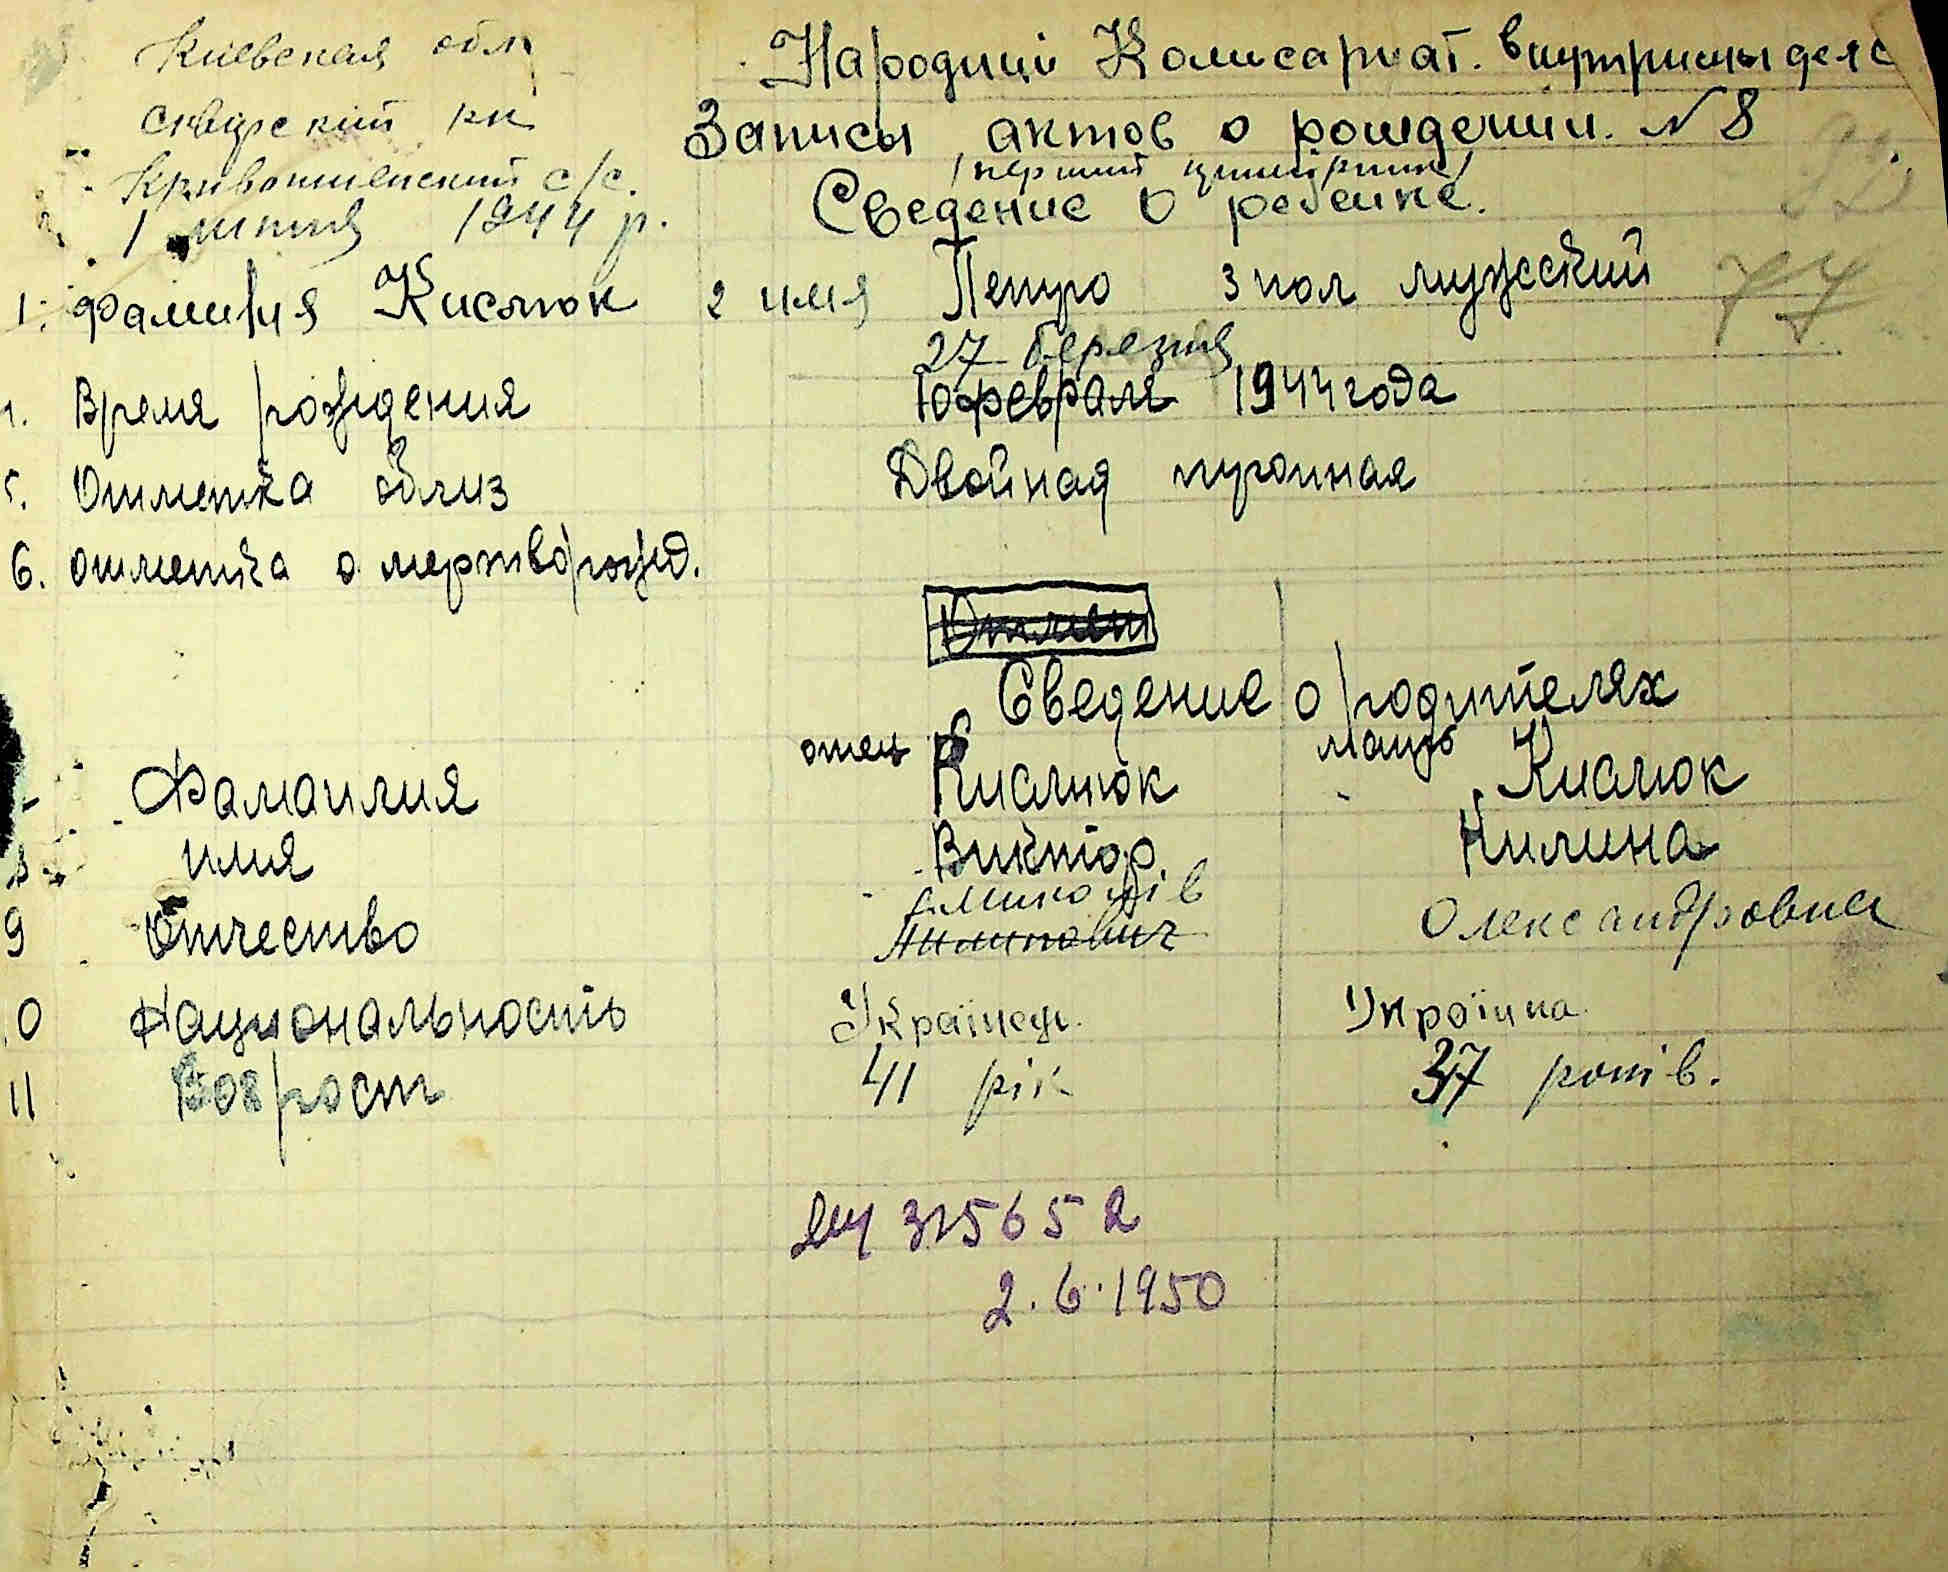 Киевская обл
Сквирский рн
Кривошиенский с/с.
1 липня 1944 р.
Народниі Комисариат. внутриныдел
Записы актов о рождении. № 8
/перший примірник/
Сведение о ребенке.
1. Фамилия Кислюк 2 имя Петро 3 пол мужский
77
27 березня
4. Время рождения 10 февраля 1944 года
5. Отметка облиз Двойная тройная
6. отметка о мертворожд.
Отмет
Сведение о родителях
отец мать
Фамаилия Кислюк Кислюк
8 имя Виктор Килина
Миколаїв
9 Отчество Филипович Олександровна
10 Национальность Українець. Українка
11 Возрост 41 рік 37 років.
315652
2.6.1950